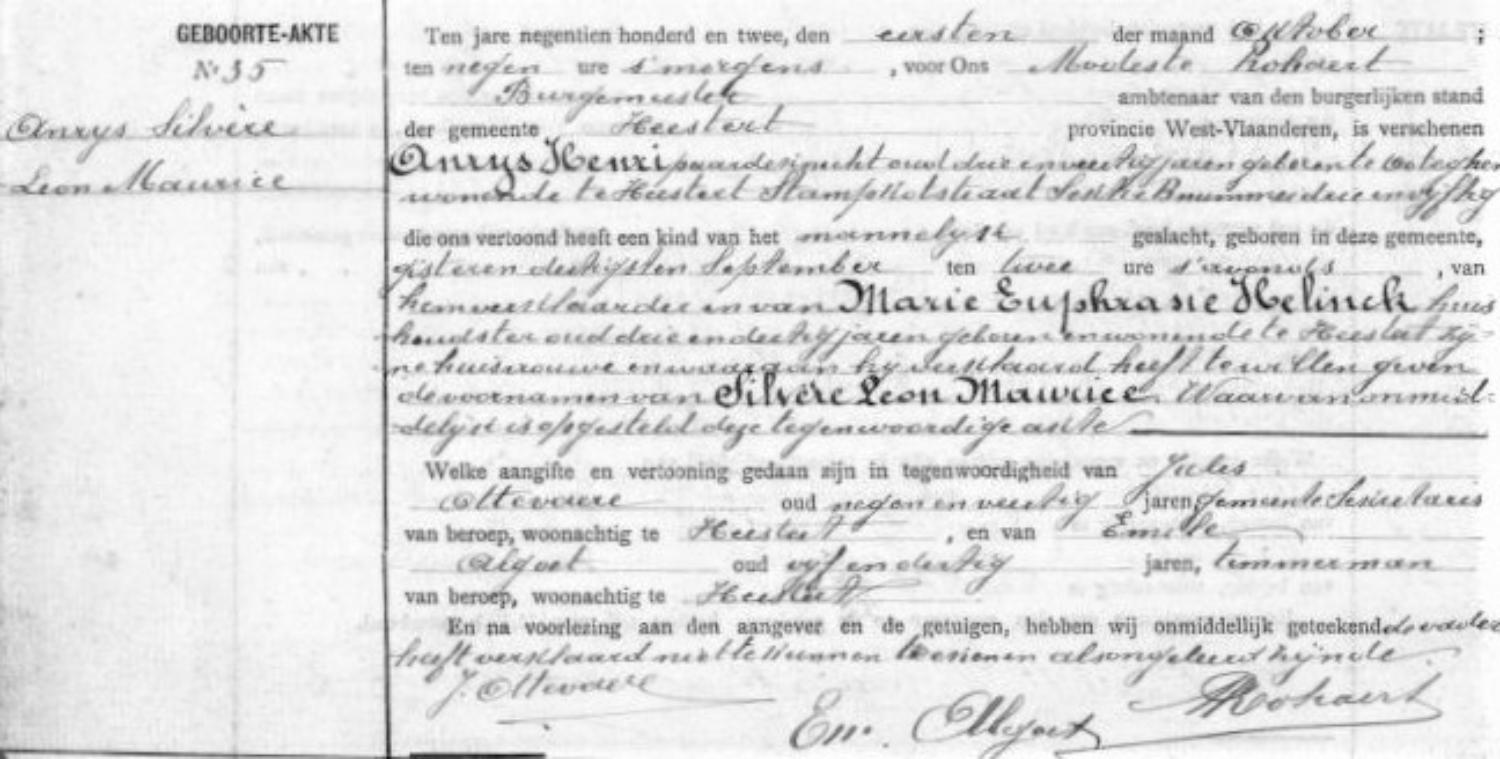 GEBOORTE-AKTE
N° 35
Anrys Silvère
Leon Maurice
Ten jare negentien honderd en twee, den eersten der maand Oktober ;
ten negen ure s'morgens , voor Ons Modeste Rohaert
Burgemeester ambtenaar van den burgerlijken stand
der gemeente Heestert provincie West-Vlaanderen, is verschenen
Anrys Henri paardeknecht oud drie en veertig jaren geboren te Ooteghem
wonende te Heestert Stampkotstraat Sektie B nummer drie en vyftig
die ons vertoond heeft een kind van het mannelyk geslacht, geboren in deze gemeente,
gisteren dertigsten September ten twee ure s'avonds , van
hem verklaarder en van Marie Euphrasie Helinck huis
houdster oud drie en dertig jaren geboren en wonende te Heestert zy-
ne huisvrouwe en waaraan hy verklaard heeft te willen geven
de voornamen van Silvère Leon Maurice. Waarvan onmid-
delijk is opgesteld deze tegenwoordige akte
Welke aangifte en vertooning gedaan zijn in tegenwoordigheid van Jules
Ottevaere oud negen en veertig jaren, gemeente Sekretaris
van beroep, woonachtig te Heestert , en van Emile
Algoet oud vyf en dertig jaren, timmerman
van beroep, woonachtig te Heestert
En na voorlezing aan den aangever en de getuigen, hebben wij onmiddellijk geteekend de vader
heeft verklaard niet te kunnen teekenen als ongeleerd zynde.
J. Ottevaere
Em. Algoet
Rohaert